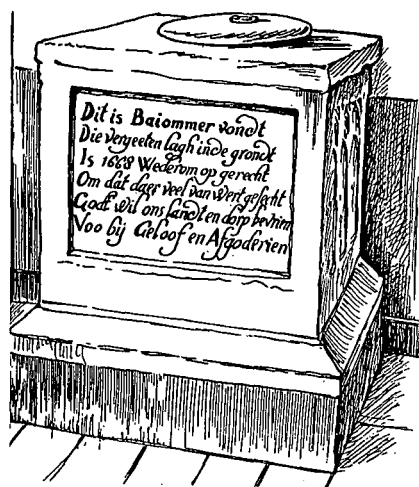 Dit is Baiommer vondt
Die vergeeten lagh inde grondt
Is 1668 Wederom op gerecht
Om dat daer veel van wert gesecht
Godt wil ons landt en dorp bevrien
Voo bij Geloof en Afgoderien